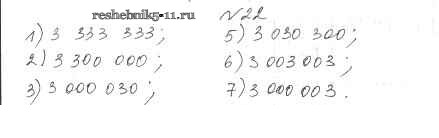 reshebnik5-11.ru
№22
1) 3 333 333;
2) 3 300 000;
3) 3 000 030;
5) 3 030 300;
6) 3 003 003;
7) 3 000 003.